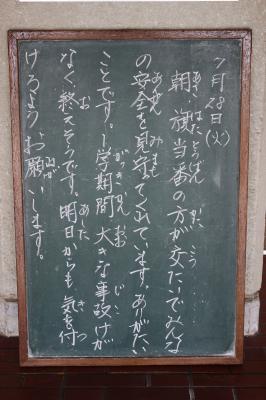 7月28日(火)
朝、旗当番の方が交たいでみんな
の安全を見守ってくれています。ありがたい
ことです。1学期間大きな事故けが
なく、終えそうです。明日からも気を付
けるようお願いします。